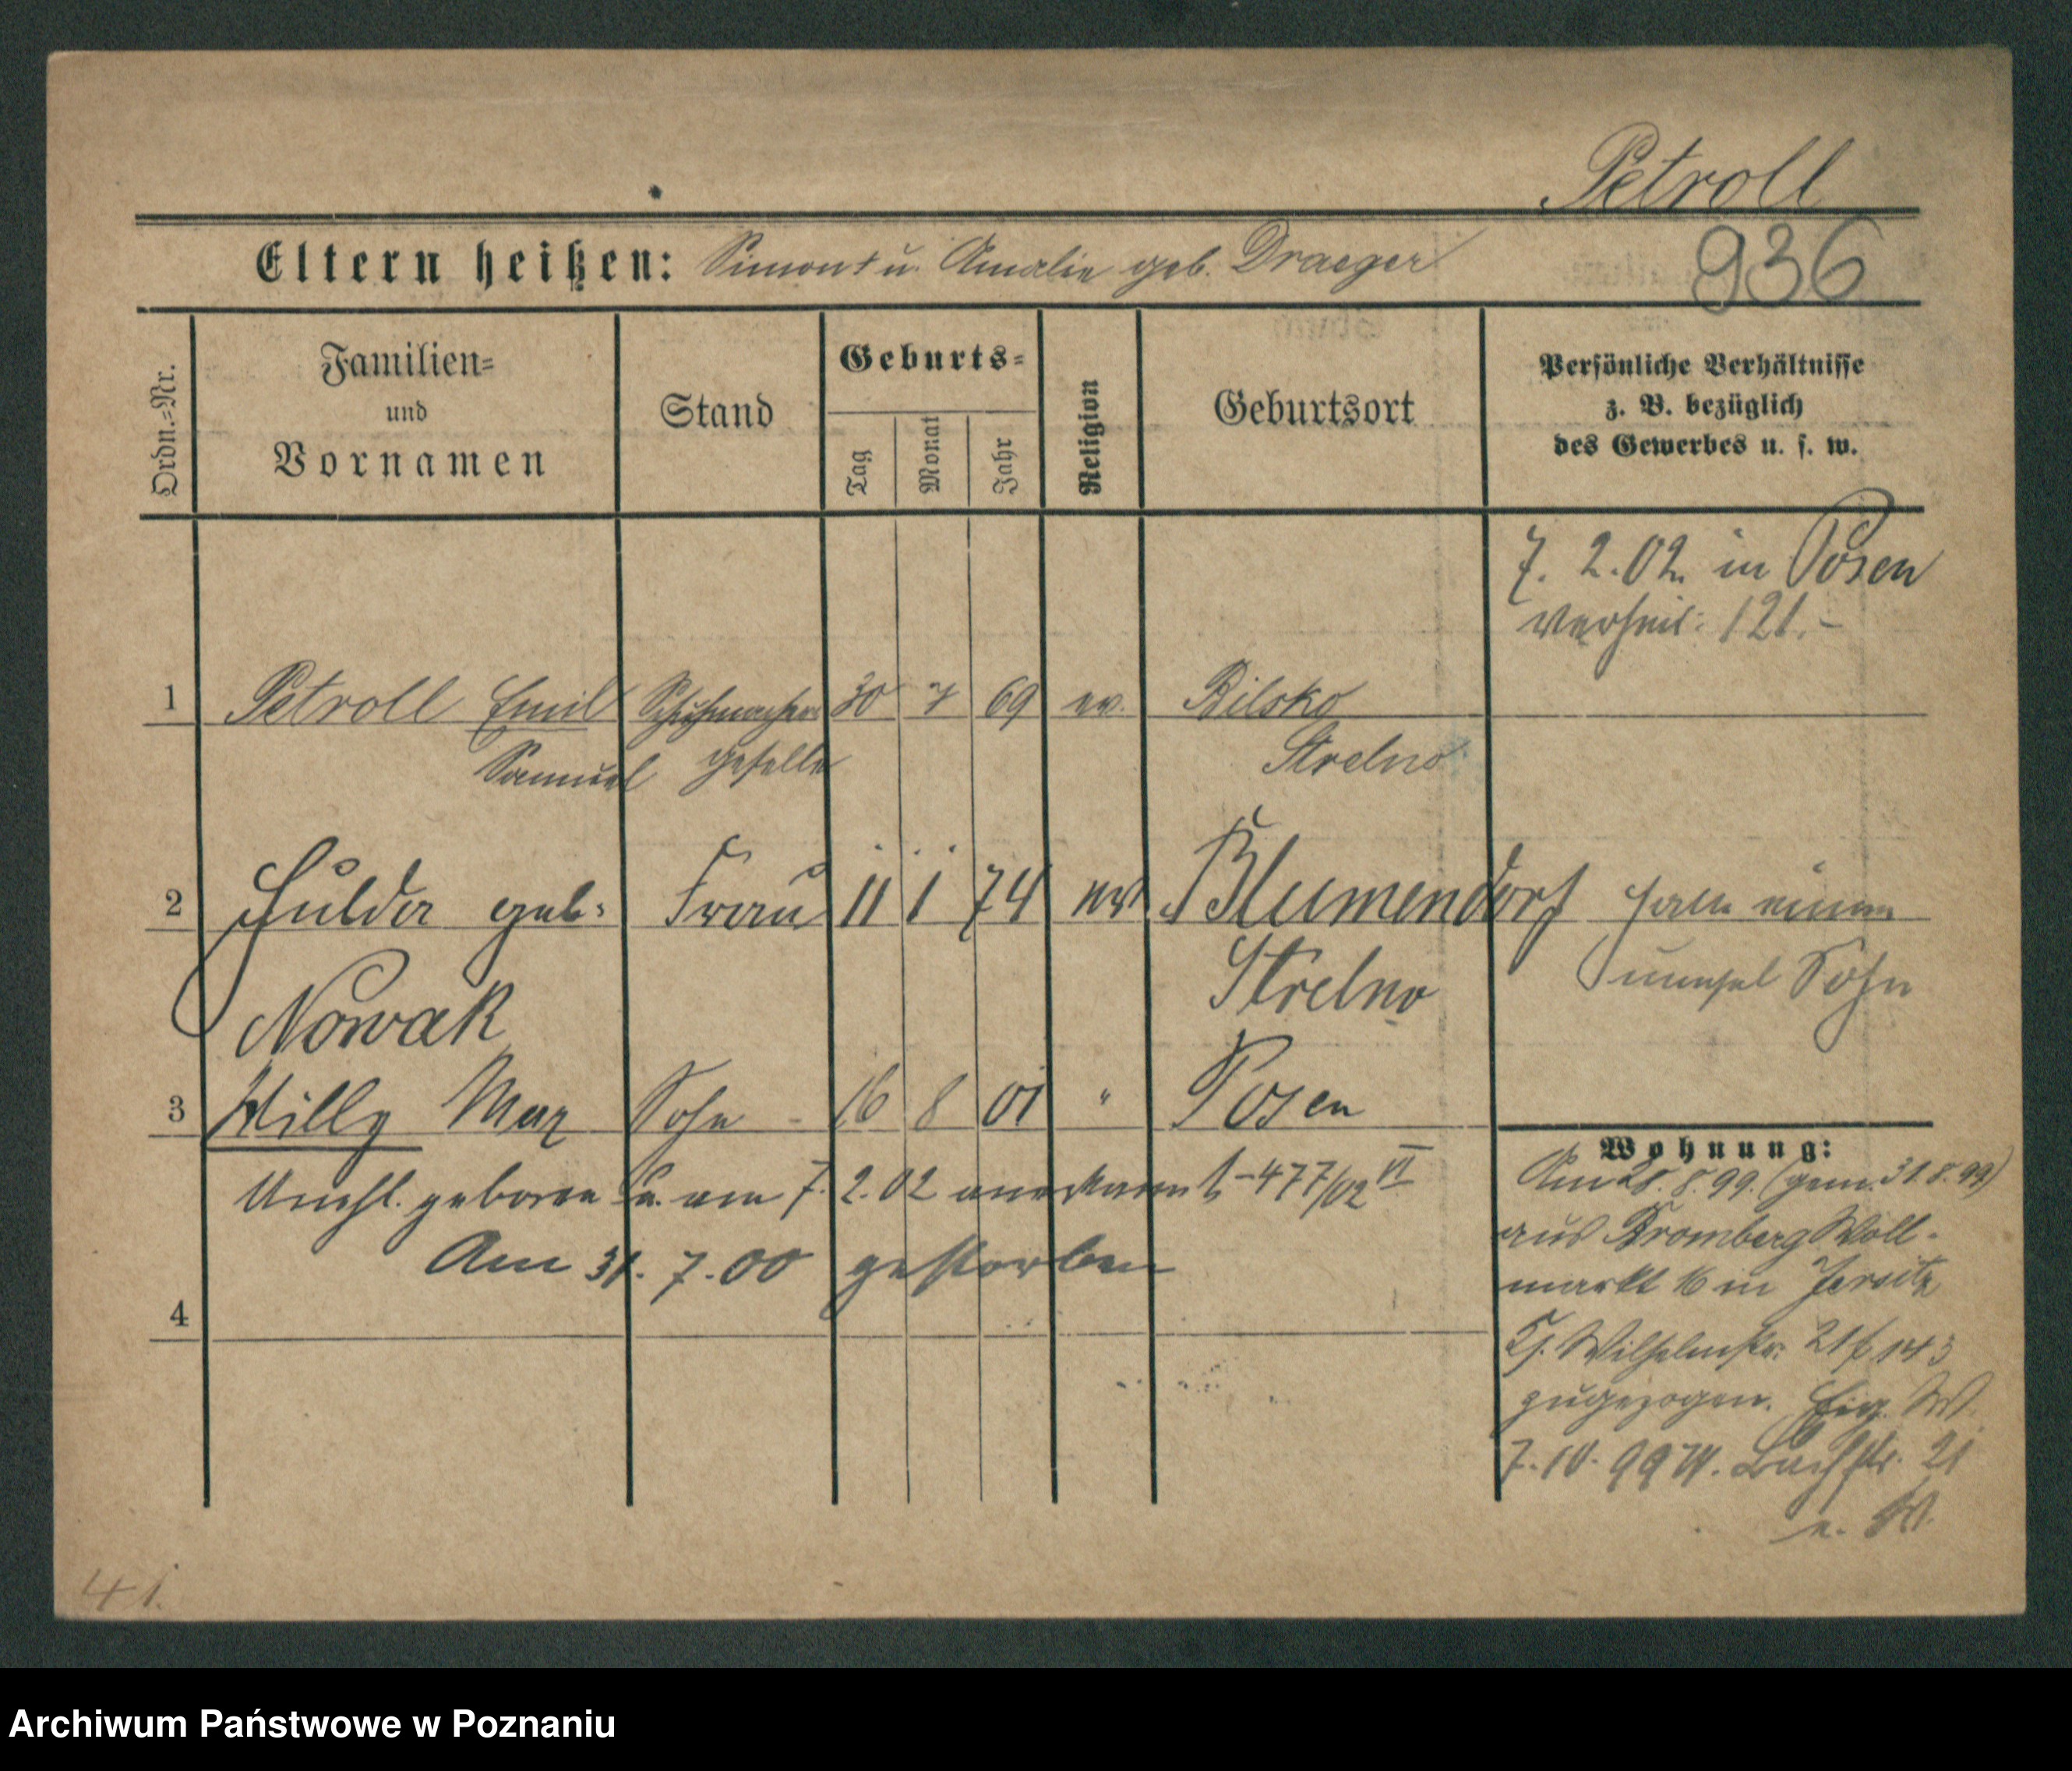 Petroll
936
Eltern heißen: Simon † u. Amalie geb. Draeger
Ordn.=Nr.
Familien=
und
Vornamen
Stand
Geburts=
Tag
Monat
Jahr
Religion
Geburtsort
Persönliche Verhältnisse
z. B. bezüglich
des Gewerbes u. s. w.
7. 2. 02. in Posen
verheir. 121.-
1 Petroll Emil Schuhmacher 30 7 69 ev. Bilsko
Samuel geselle Strelno
2 Hulda geb. Frau 11 1 74 ev Blumendorf hatte einen
Nowak Strelno unehel Sohn
3 Willy Max Sohn - 16 8 01 " Posen
Unehl. geboren u. am 7. 2. 02 anerkannt - 477/02 VI
Am 31. 7. 00 gestorben
4
Wohnung:
Am 28. 8. 99. (gem. 31. 8. 99)
aus Bromberg Woll-
markt 16 in Jersitz
Gr. Wilhelmstr. 21 b 143
zugezogen. Eig. W.
7. 10. 99 W. Bachstr. 21
e. W.
41.
Archiwum Państwowe w Poznaniu